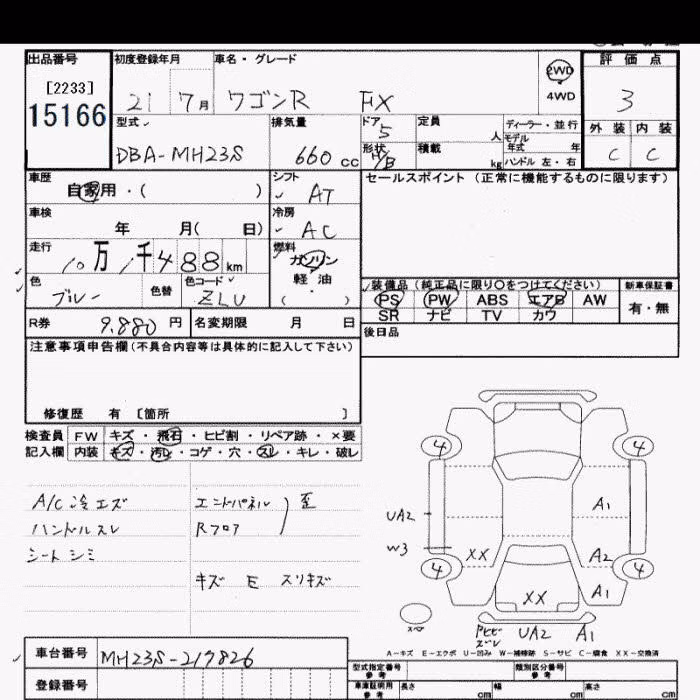 出品番号 初度登録年月 車名・グレード 2WD 4WD 評価点
[2233]
15166 21 7月 ワゴンR FX 3
型式 排気量 ドア 5 定員 人 ディーラー・並行 外装 内装
DBA-MH23S 660 cc 形状 H/B 積載 kg モデル年式 年 ハンドル 左・右 C C
車歴 自家用・( ) シフト AT セールスポイント(正常に機能するものに限ります)
車検 年 月( 日) 冷房 AC
走行 10万 1千488km 燃料 ガソリン 軽油 ( )
色 ブルー 色替 色コード ZLU
装備品(純正品に限り○をつけてください) 新車保証書
PS PW ABS エアB AW 有・無
SR ナビ TV カワ
R券 9,880円 名変期限 月 日 後日品
注意事項申告欄(不具合内容等は具体的に記入して下さい)
修復歴 有 [箇所 ]
検査員 FW キズ・飛石・ヒビ割・リペア跡・×要
記入欄 内装 キズ・汚レ・コゲ・穴・スレ・キレ・破レ
A/C冷エズ エンドパネル 歪
ハンドルスレ Rフロア
シートシミ
キズ E スリキズ
4 4
A1
UA2
W3 XX A2
4 4
A1
XX
スペア UA2 A1
A-キズ E-エクボ U-凹み W-補修跡 S-サビ C-腐食 XX-交換済
車台番号 MH23S-217826
登録番号
型式指定番号 参考 類別区分番号 参考
車庫証明用 参考 長さ cm 幅 cm 高さ cm